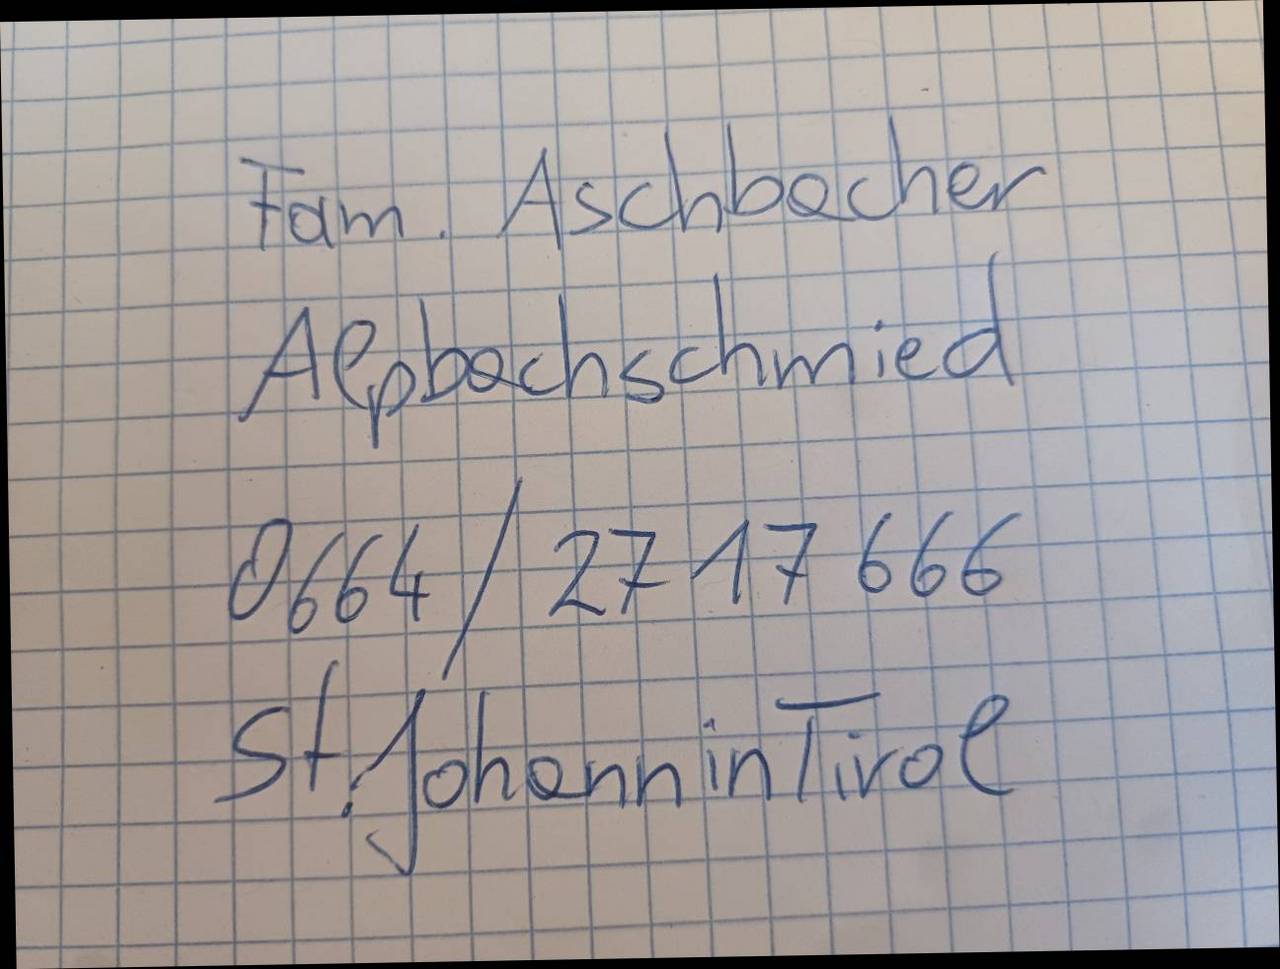 Fam. Aschbacher
Alpbachschmied
0664/2717666
St. Johann in Tirol